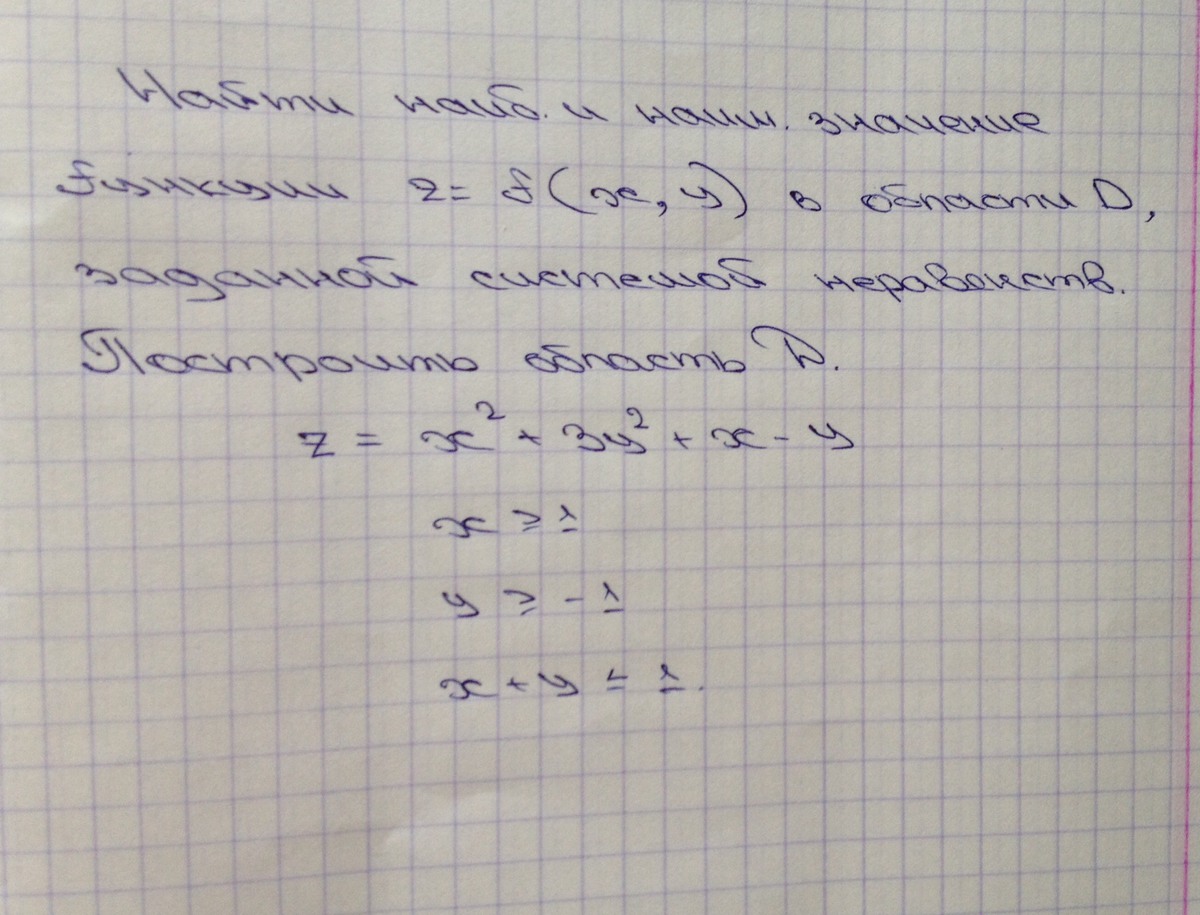 Найти наиб. и наим. значение
функции z = f(x, y) в области D,
заданной системой неравенств.
Построить область D.
z = x² + 3y² + x - y
x ≥ 1
y ≥ -1
x + y ≤ 1.